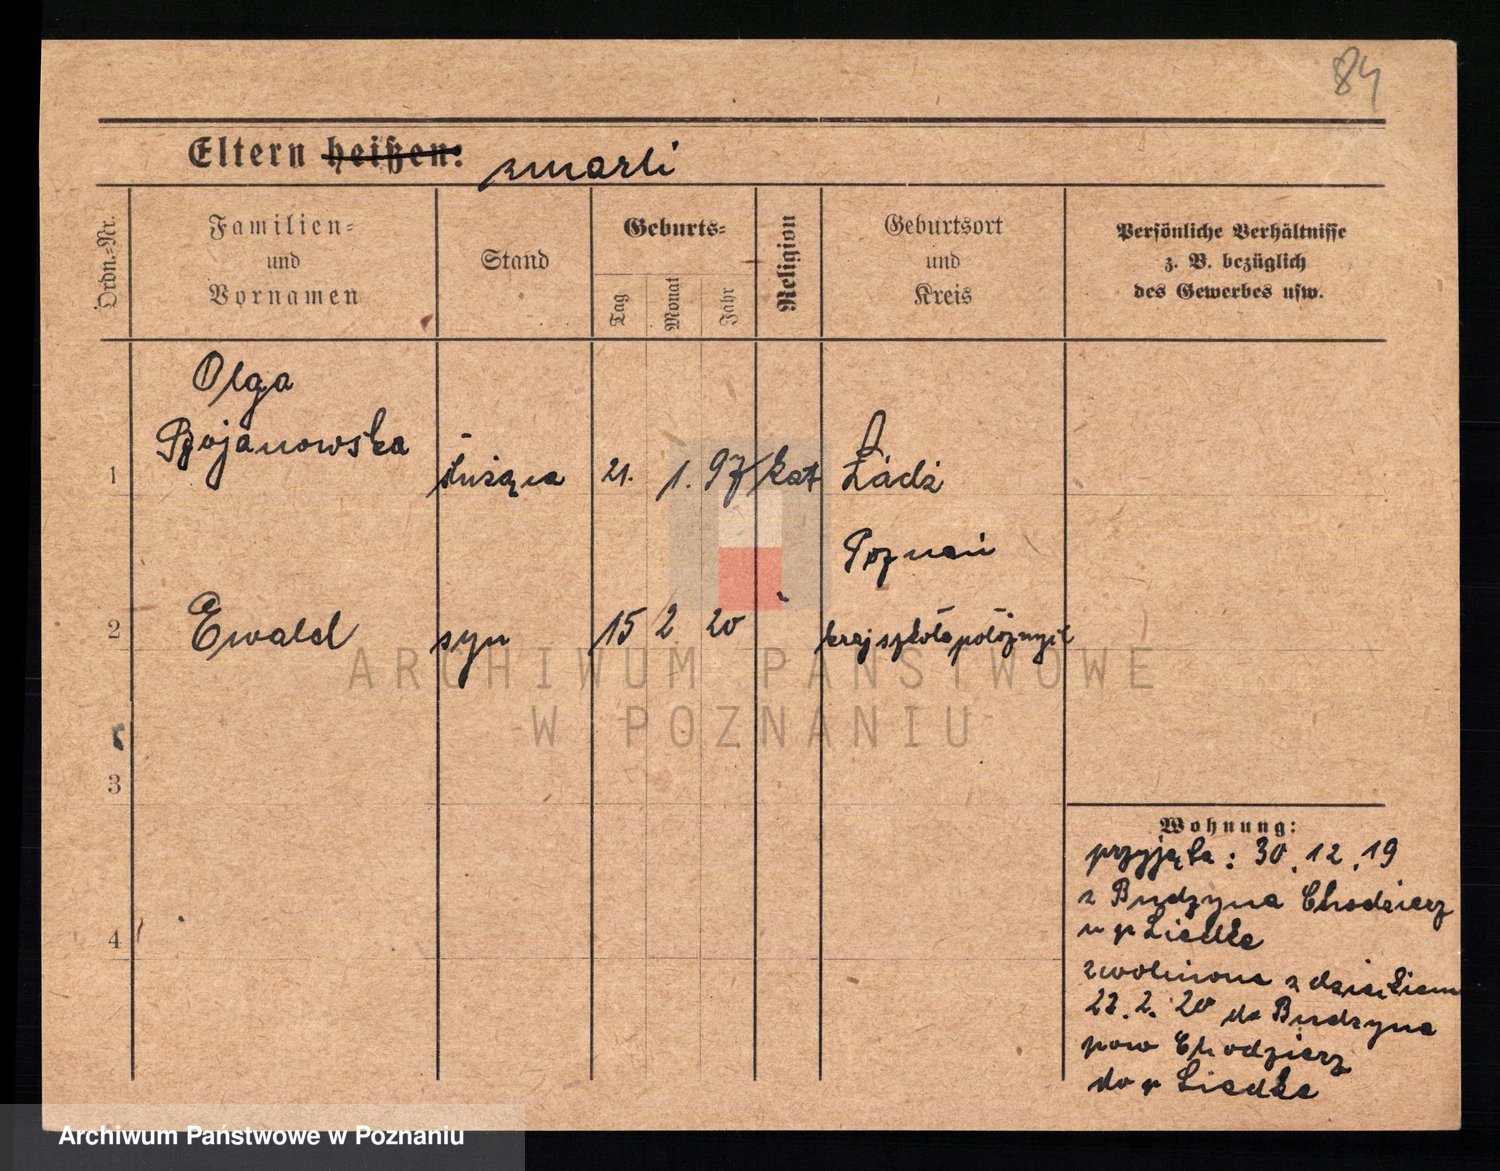 84
Eltern heißen: zmarli
Ordn.-Nr.
Familien-
und
Vornamen
Stand
Geburts-
Tag
Monat
Jahr
Religion
Geburtsort
und
Kreis
Persönliche Verhältnisse
z. B. bezüglich
des Gewerbes usw.
Olga
Bojanowska
1
służąca 21. 1. 97 kat Łódź
Poznań
2 Ewald syn 15 2 20 kraj szkoła położnyic
3
4
Wohnung:
przyjęta: 30.12.19
z Budzyna Chodzierz
u p Liedke
zwolniona z dzieckiem
22.2.20 do Budzyna
pow Chodzierz
do p Liedke
ARCHIWUM PAŃSTWOWE
W POZNANIU
Archiwum Państwowe w Poznaniu